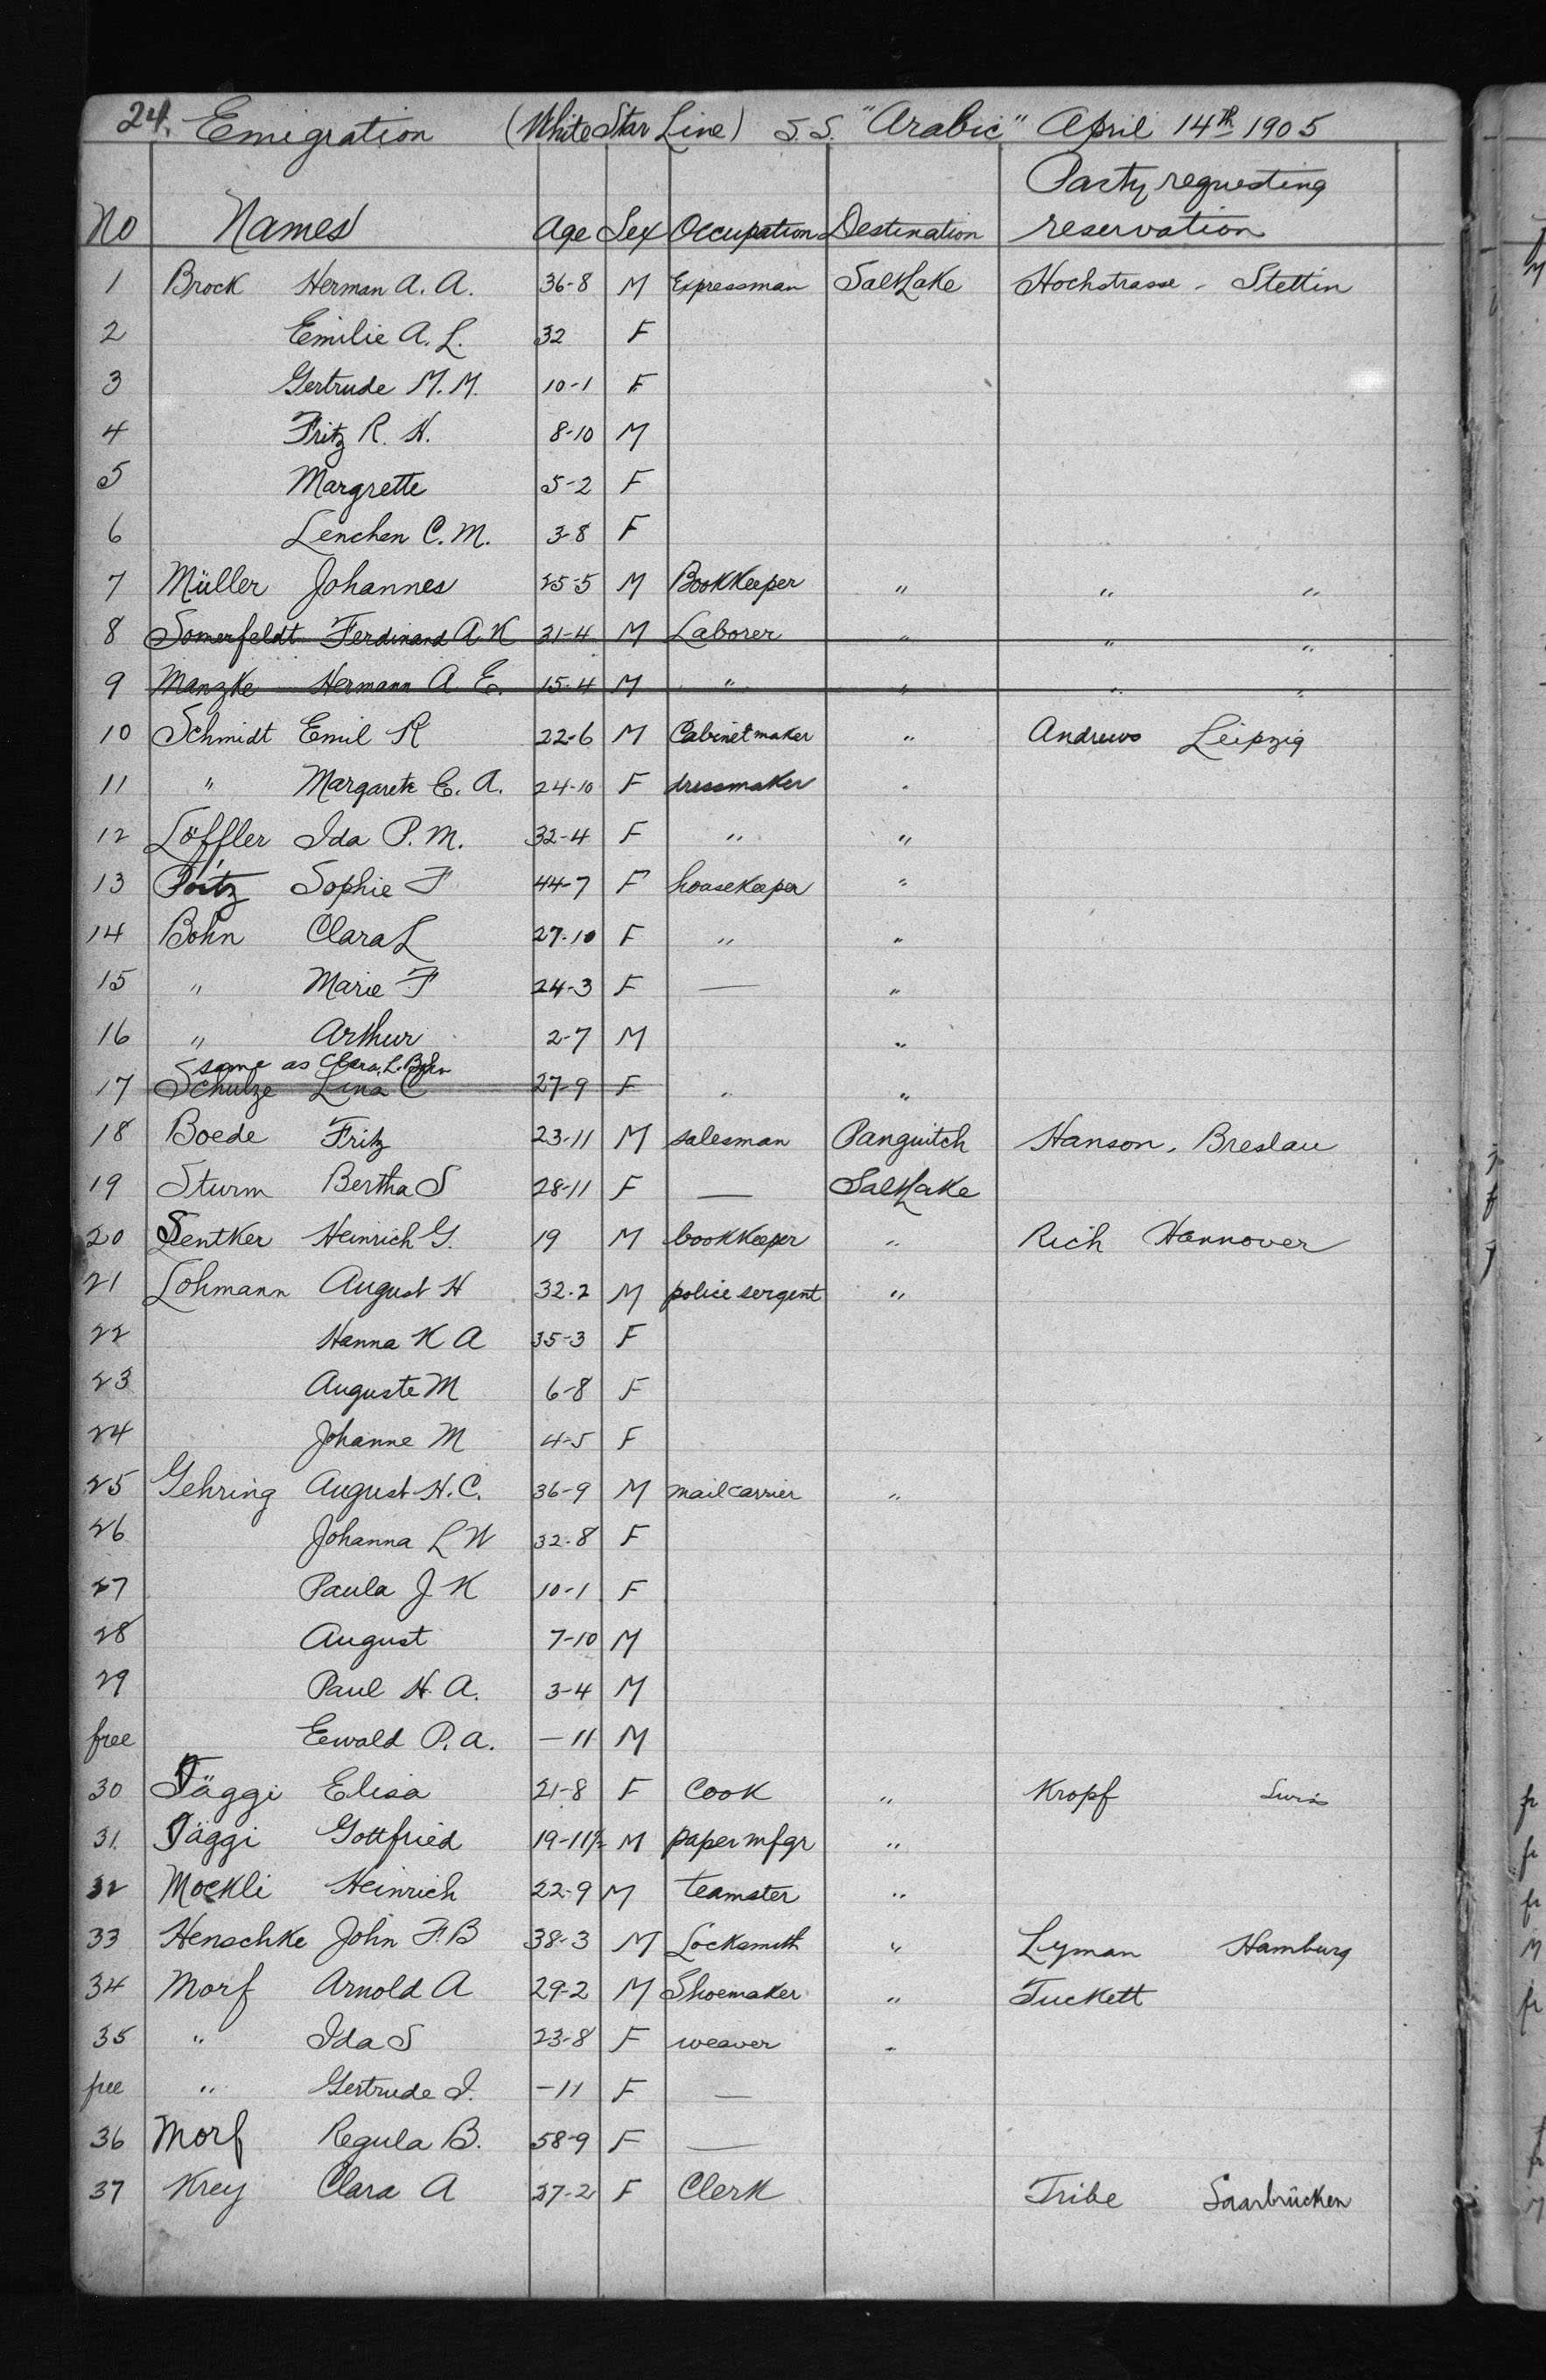 24. Emigration (White Star Line) S.S. "Arabic" April 14th 1905
No Names Age Sex Occupation Destination Party requesting reservation
1 Brock Herman A. A. 36-8 M Expressman Salt Lake Hochstrasse - Stettin
2 Emilie A. L. 32 F
3 Gertrude M. M. 10-1 F
4 Fritz R. H. 8-10 M
5 Margrette 5-2 F
6 Lenchen C. M. 3-8 F
7 Müller Johannes 25-5 M Bookkeeper " " "
8 Somerfeldt Ferdinand A K 31-4 M Laborer " " "
9 Manzke Hermann A. E. 15-4 M " " " "
10 Schmidt Emil R 22-6 M Cabinetmaker " Andrews Leipzig
11 " Margarete E. A. 24-10 F dressmaker "
12 Löffler Ida P. M. 32-4 F " "
13 Sophie F 44-7 F housekeeper "
14 Bohn Clara L 27-10 F " "
15 " Marie F 24-3 F — "
16 " Arthur 2-7 M "
same as Clara. L. Bohn
17 Schulze Lina C 27-9 F " "
18 Boede Fritz 23-11 M salesman Panguitch Hanson. Breslau
19 Sturm Bertha S 28-11 F — Salt Lake
20 Sentker Heinrich G. 19 M bookkeeper " Rich Hannover
21 Lohmann August H 32-2 M police sergent "
22 Hanna K A 35-3 F
23 Auguste M 6-8 F
24 Johanne M 4-5 F
25 Gehring August H. C. 36-9 M mail carrier "
26 Johanna L W 32-8 F
27 Paula J. K 10-1 F
28 August 7-10 M
29 Paul H. A. 3-4 M
free Ewald P. A. — 11 M
30 Jäggi Elisa 21-8 F Cook " Kropf Swis
31. Jäggi Gottfried 19-11½ M paper mfgr "
32 Mockli Heinrich 22-9 M teamster "
33 Henschke John F. B 38-3 M Locksmith " Lyman Hamburg
34 Morf Arnold A 29-2 M Shoemaker " Tuckett
35 " Ida S 23-8 F weaver "
free " Gertrude I. -11 F —
36 Morf Regula B. 58-9 F —
37 Krey Clara A 27-2 F Clerk Tribe Saarbrücken